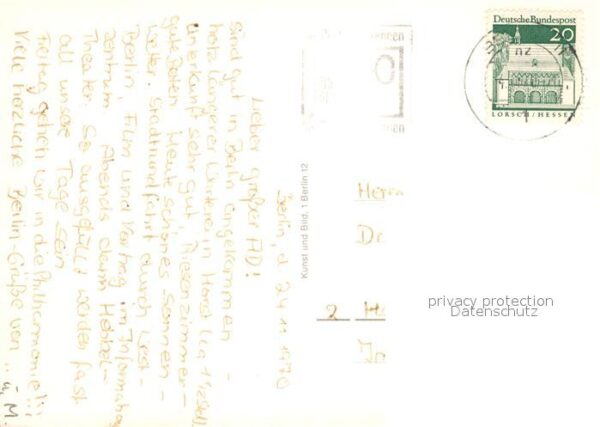 Berlin, d. 24.11.1970
Lieber großer AD!
Sind gut in Berlin angekommen -
trotz längerer Warterei in
Unterkunft sehr gut Riesenzimmer -
gute Betten. Heute schönes Sonnen-
wetter. Stadtrundfahrt durch West-
Berlin, Film und Vortrag im Informations
zentrum Abends dann Hebbel-
Theater. So ausgefüllt werden fast
all unsere Tage sein
Freitag gehen wir in die Philharmonie!!!
Viele herzliche Berlin-Grüße von
u. M.
Kunst und Bild, 1 Berlin 12
Deutsche Bundespost
20
LORSCH/HESSEN
Herrn
Dr
2
privacy protection
Datenschutz